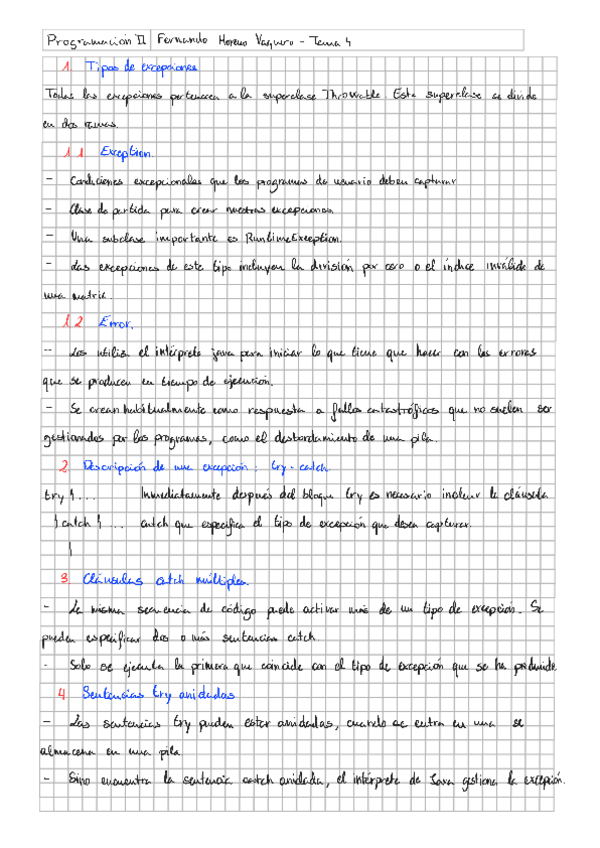 Programación II Fernando Moreno Vaquero - Tema 4
1. Tipos de excepciones
Todas las excepciones pertenecen a la superclase Throwable. Esta superclase se divide
en dos ramas.
1.1 Exception.
- Condiciones excepcionales que los programas de usuario deben capturar
- Clase de partida para crear nuestras excepciones
- Una subclase importante es RuntimeException.
- Las excepciones de este tipo incluyen la división por cero o el índice inválido de
una matriz.
1.2 Error.
- Los utiliza el intérprete java para iniciar lo que tiene que hacer con los errores
que se producen en tiempo de ejecución.
- Se crean habitualmente como respuesta a fallos catastróficos que no suelen ser
gestionados por los programas, como el desbordamiento de una pila.
2. Descripción de una excepción: try-catch
try { ... Inmediatamente después del bloque try es necesario incluir la cláusula
} catch { ... catch que especifica el tipo de excepción que desea capturar.
}
3 Cláusulas catch múltiples.
- La misma secuencia de código puede activar más de un tipo de excepción. Se
pueden especificar dos o más sentencias catch
- Solo se ejecuta la primera que coincide con el tipo de excepción que se ha producido
4 Sentencias try anidadas
- Las sentencias try pueden estar anidadas, cuando se entra en una se
almacena en una pila
- Si no encuentra la sentencia catch anidada, el intérprete de Java gestiona la excepción.